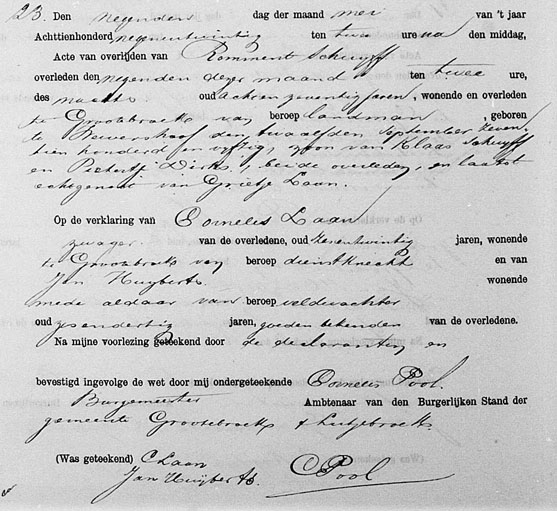 23. Den negenden dag der maand mei van 't jaar
Achttienhonderd negenentwintig ten twee ure na den middag,
Acte van overlijden van Remment Schuyff
overleden den negenden dezer maand ten twee ure,
des nachts oud acht en zeventig jaren, wonende en overleden
te Grootebroek van beroep landman, geboren
te den twaalfden September zeven
tien honderd en vyftig, zoon van Klaas Schuyff
en Pietertje Dirks, beide overleden, en laatst
echtgenoot van Grietje Laan.
Op de verklaring van Cornelis Laan
zwager van de overledene, oud zeventwintig jaren, wonende
te Grootebroek van beroep dienstknecht en van
Jan Huyberts wonende
mede aldaar van beroep veldwachter
oud jaren, goeden bekenden van de overledene.
Na mijne voorlezing geteekend door de declaranten en
bevestigd ingevolge de wet door mij ondergeteekende Cornelis Pool.
Burgemeester Ambtenaar van den Burgerlijken Stand der
gemeente Grootebroek & Lutjebroek.
(Was geteekend) C Laan
Jan Huyberts. C Pool